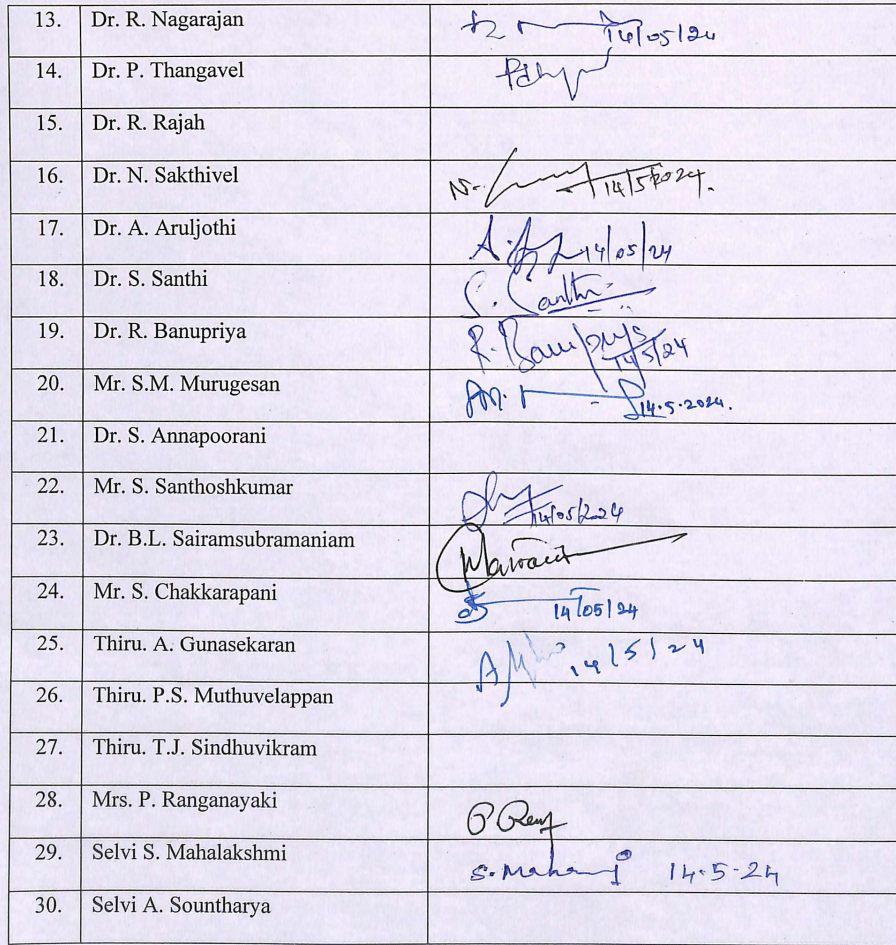 13. Dr. R. Nagarajan 14/05/24
14. Dr. P. Thangavel
15. Dr. R. Rajah
16. Dr. N. Sakthivel N. 14/5/2024.
17. Dr. A. Aruljothi A. 14/05/24
18. Dr. S. Santhi S. Santhi
19. Dr. R. Banupriya R. Banupriya 14/5/24
20. Mr. S.M. Murugesan 14.5.2024.
21. Dr. S. Annapoorani
22. Mr. S. Santhoshkumar 14/05/2024
23. Dr. B.L. Sairamsubramaniam
24. Mr. S. Chakkarapani 14/05/24
25. Thiru. A. Gunasekaran 14/5/24
26. Thiru. P.S. Muthuvelappan
27. Thiru. T.J. Sindhuvikram
28. Mrs. P. Ranganayaki
29. Selvi S. Mahalakshmi 14.5.24
30. Selvi A. Sountharya